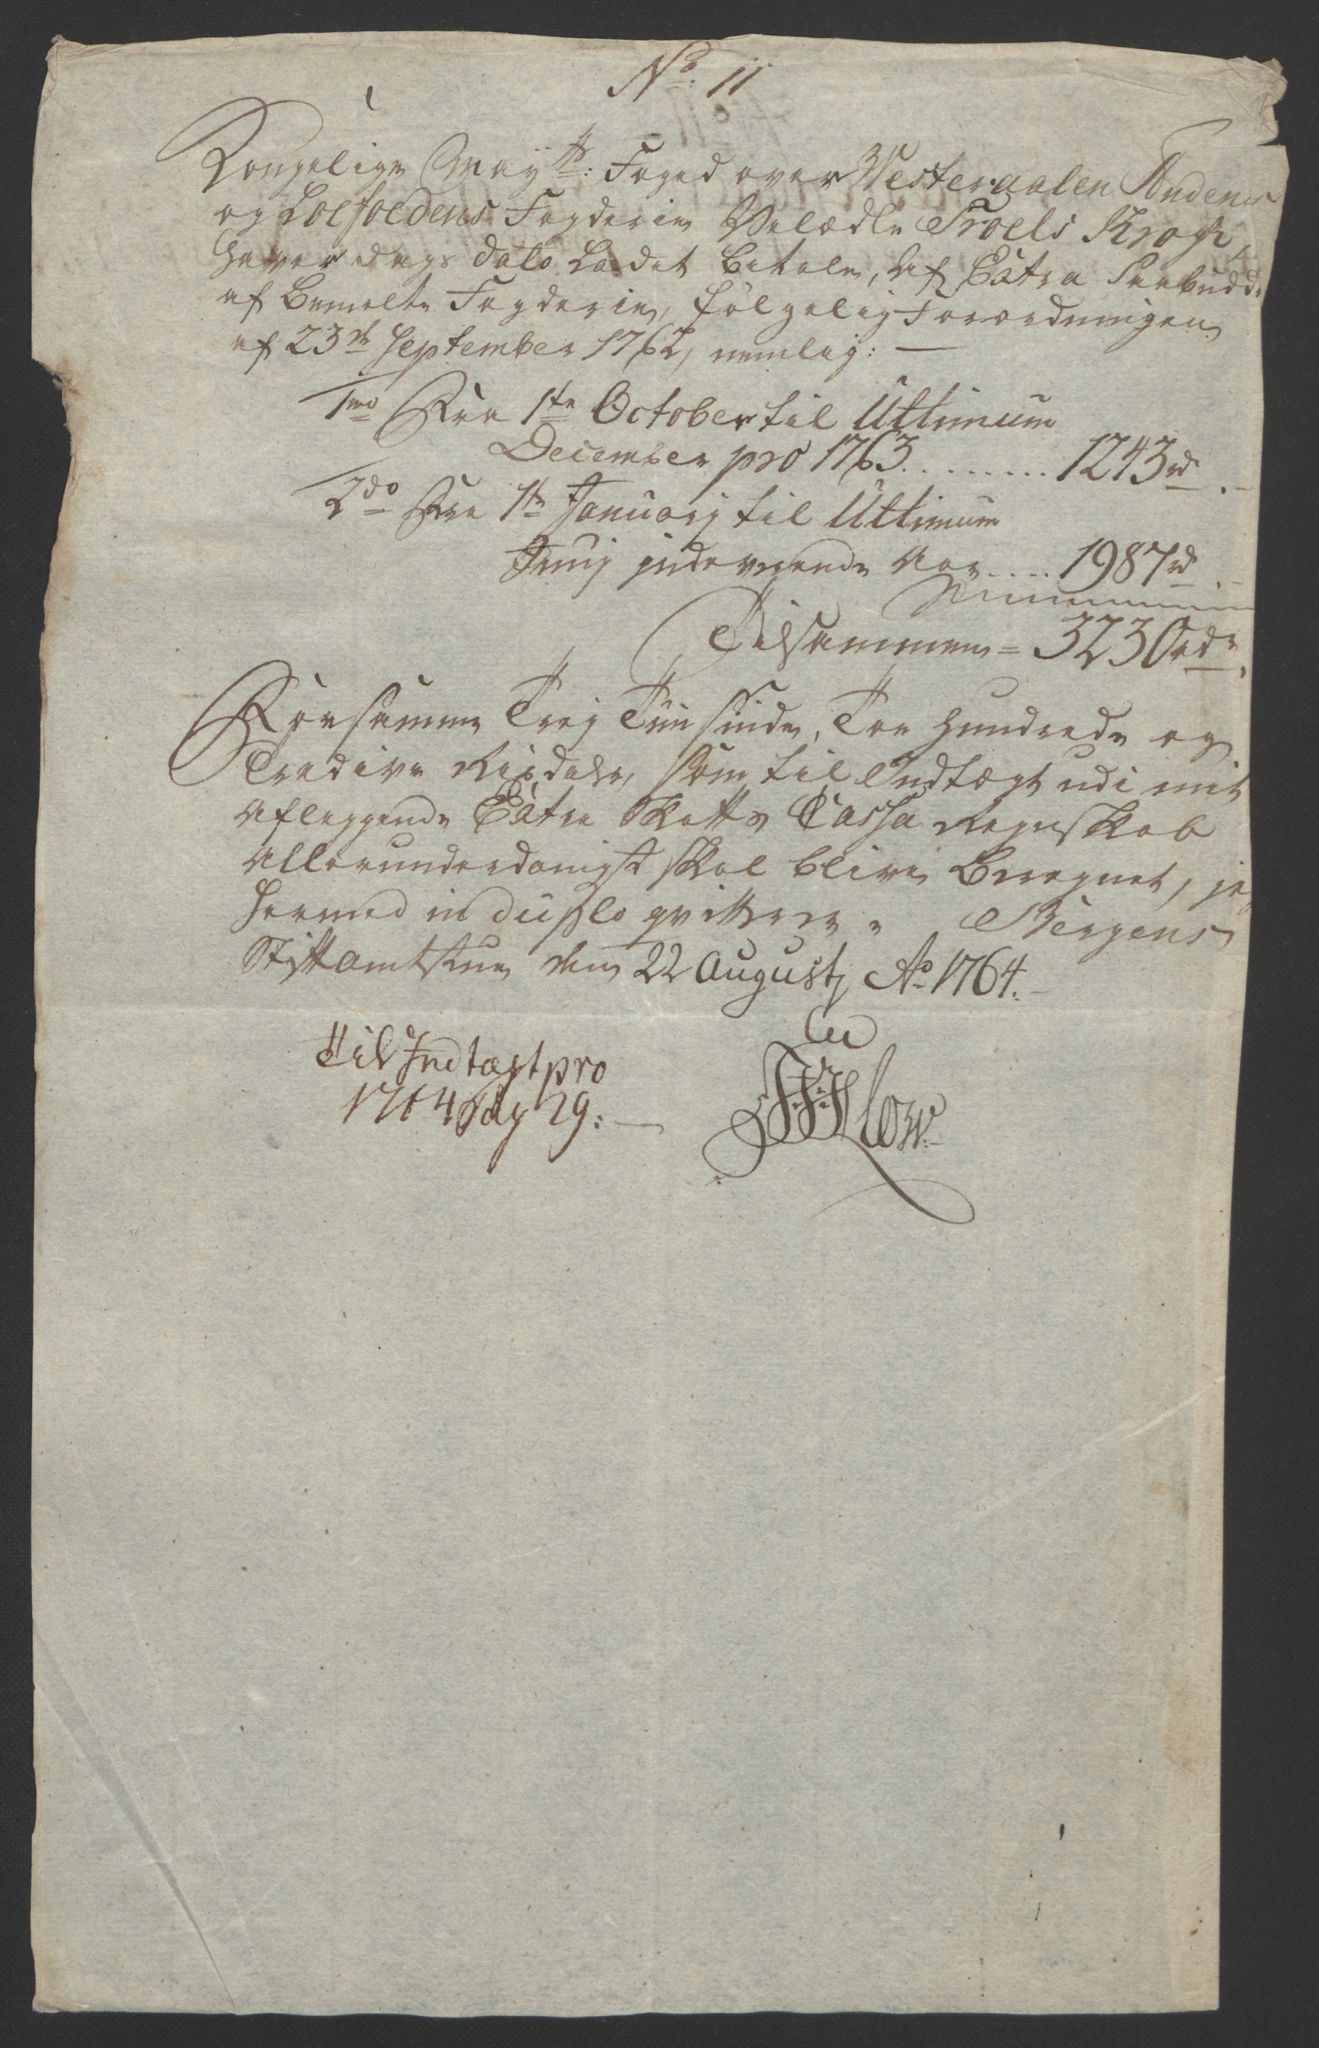 No. 11
Kongelige Mayts: Foged over Westeraalen Andenes
og Loefoedens Fogderie Velædle Troels Krogh,
haver dags dato Ladet betale, af Extra
af bemelte Fogderie, følgelig Forordningen
af 23de September 1762, nemlig:
1mo Fra 1te October til Ultimum
December pro 1763 ......... 1243 rd
2do Fra 1te January til Ultimum
Junij indeværende Aar .... 1987 rd
Tilsammen = 3230 rdr
For samme Trej Tüsinde, Toe hundrede og
Tredive Rixdaler, som til Indtægt udi mit
aflæggende Extra Skatts Cassa Regnskab
allerunderdanigst skal blive beregnet, jeg
hermed in duplo qvitterer. Bergens
Stiftamtstue den 22 Augustj Ao 1764.
Til Indtægt pro
1764 Pag 29:
Klow